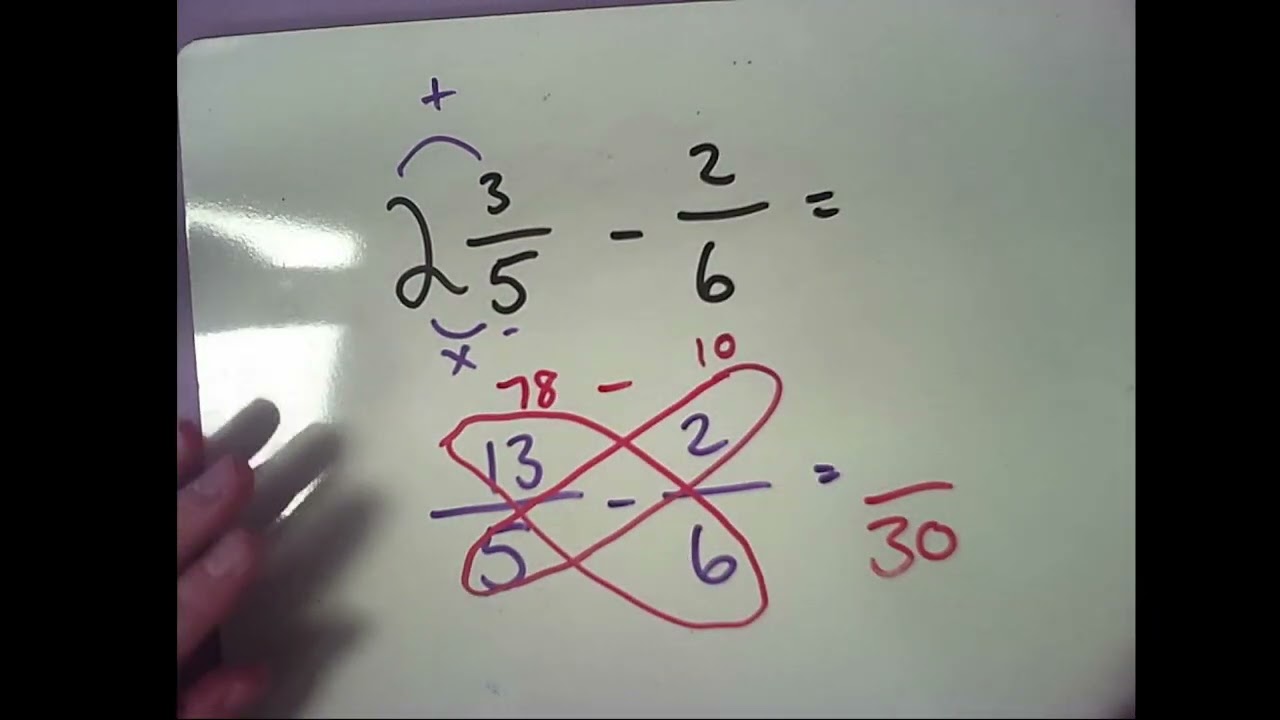 +
2 3/5 - 2/6 =
x
78 - 10
13/5 - 2/6 = /30